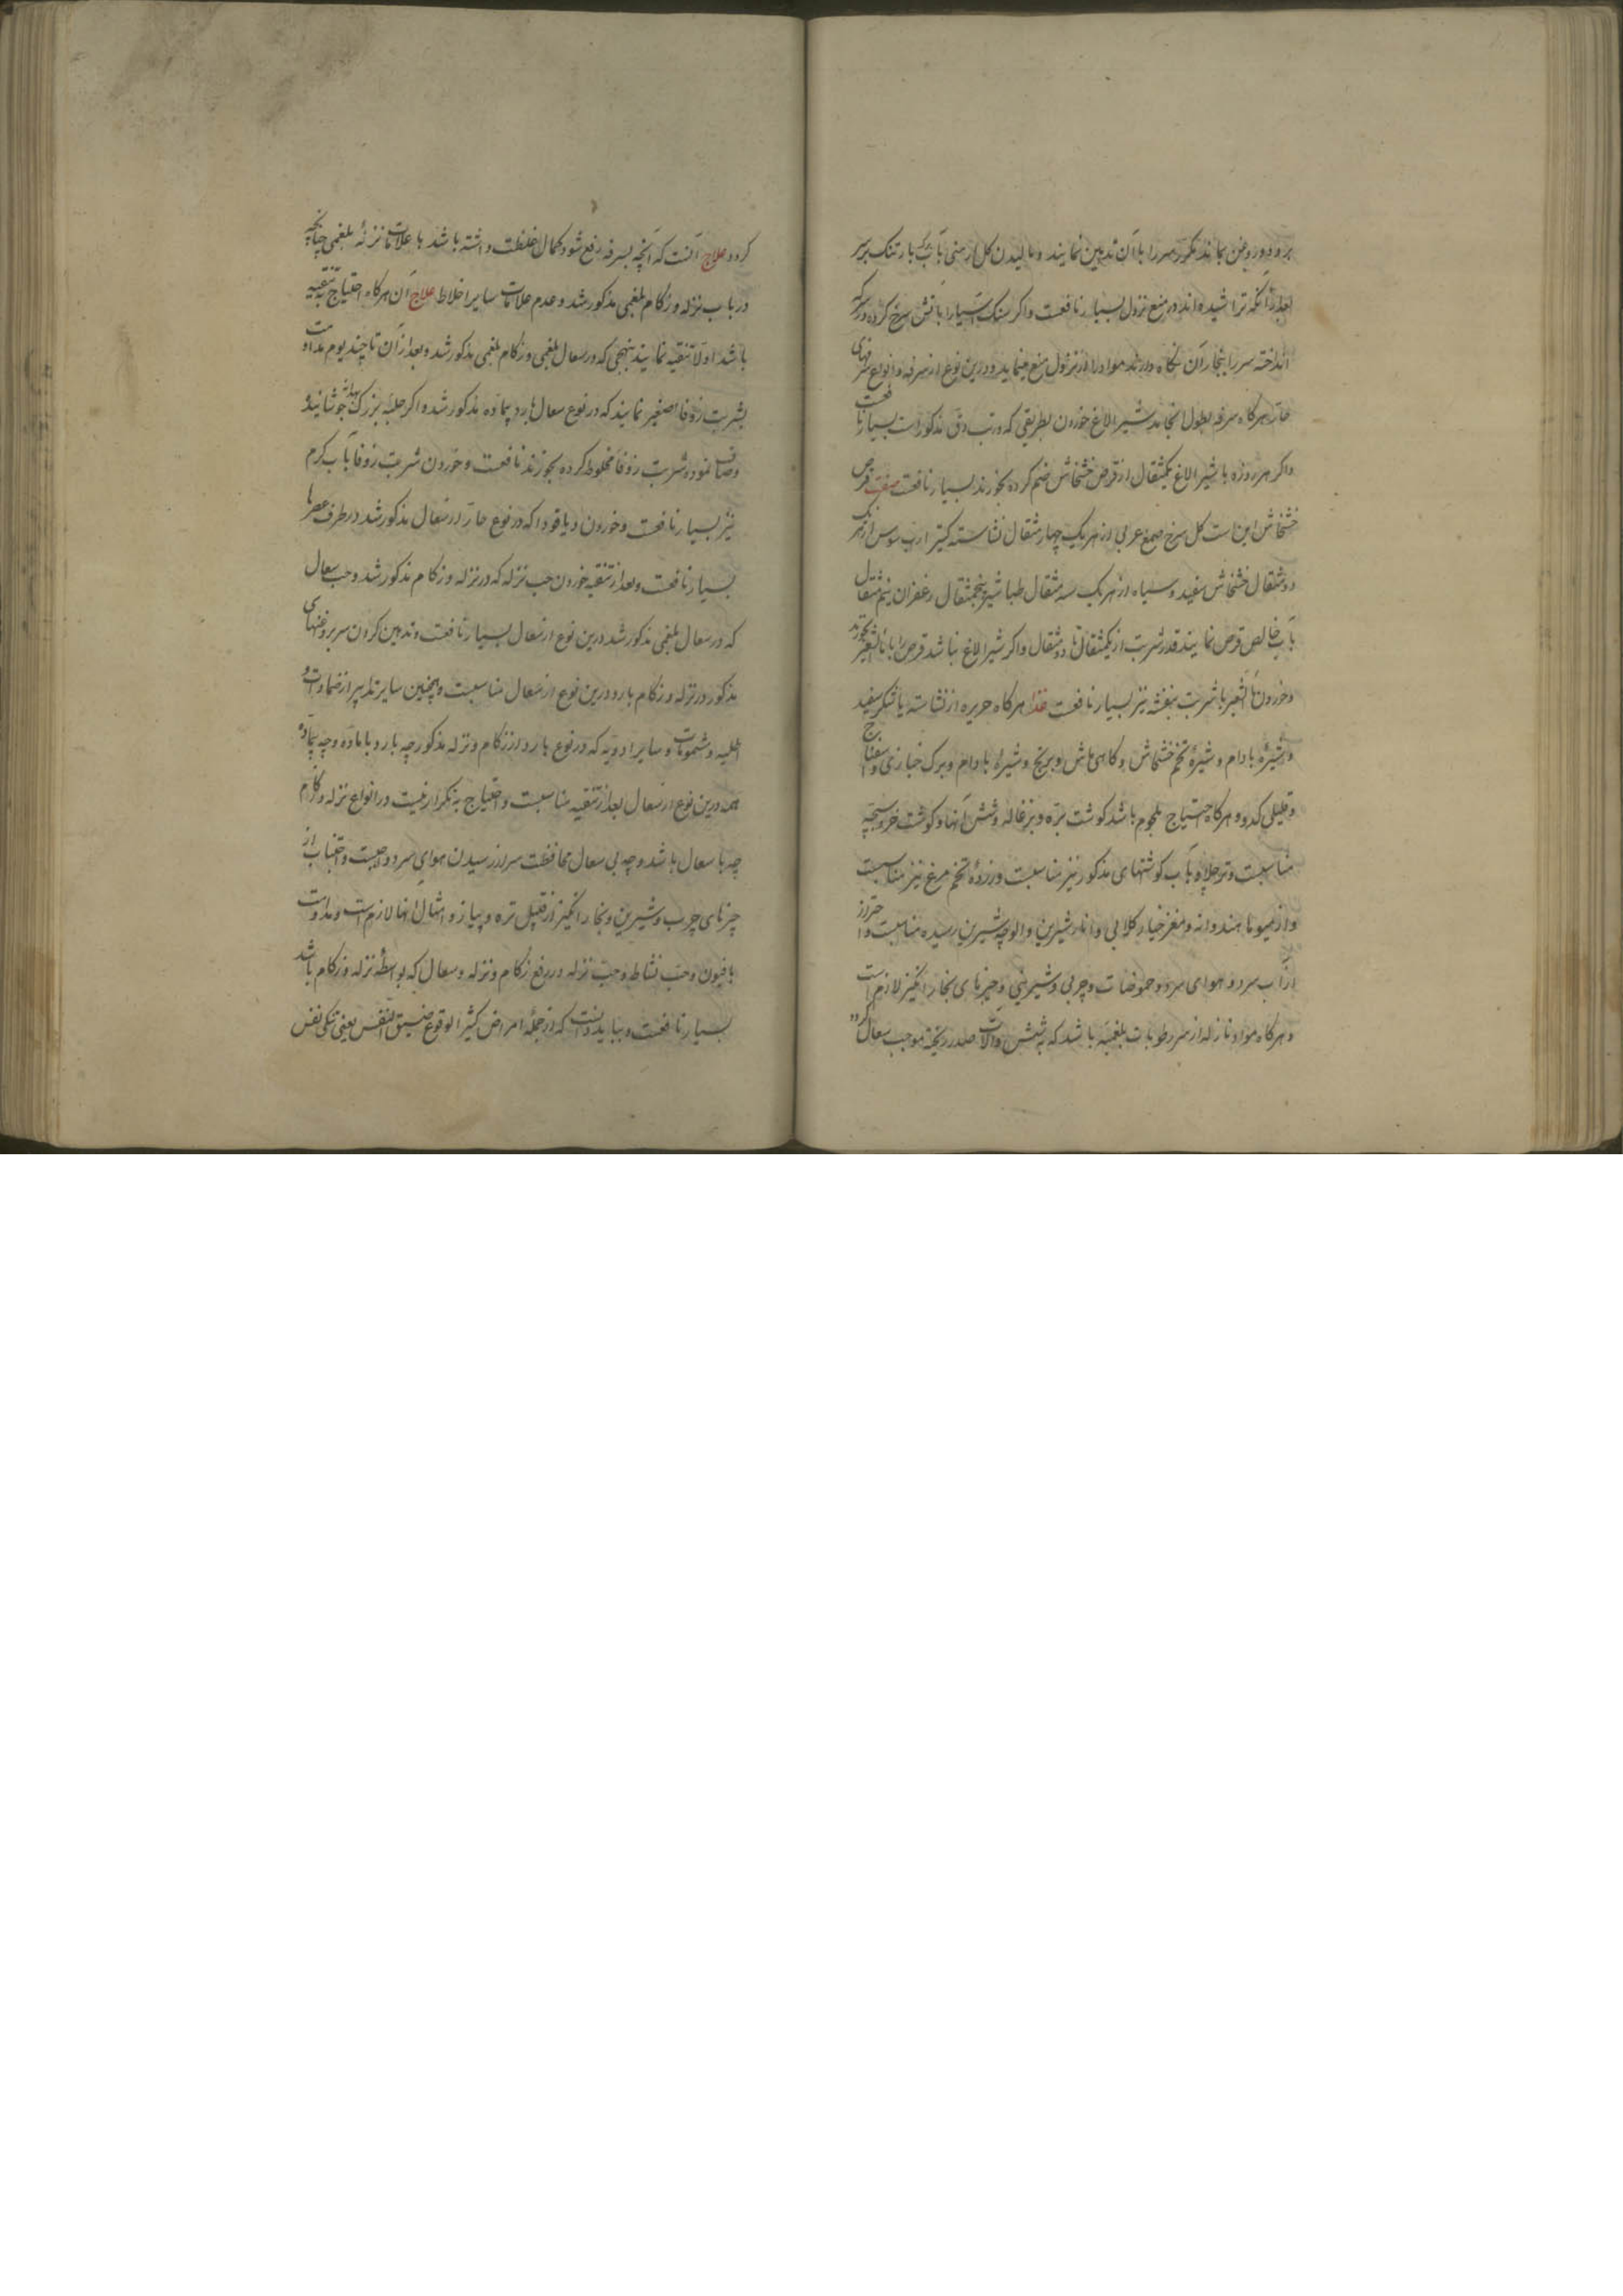 برود و روغن بماند مکرر سر را بآن تدهین نمایند و مالیدن کل ارمنی بآب برک بارتنک بر سر
بعد از آنکه تراشیده اند در منع نزول بسیار نافعست و اکر سنک آسیا را بآتش سرخ کرده در سرکه
انداخته سر را ببخار آن نکاه دارند مواد را از نزول منع مینماید و درین نوع از سرفه و انواع سرفهای
حار هرکاه سرفه بطول انجامد شیر الاغ خوردن بطریقی که در تب دق مذکور است بسیار نافعست
و اکر هر روزه با شیر الاغ یکمثقال از قرص خشخاش ضم کرده بخورند بسیار نافعست صفت قرص
خشخاش این است کل سرخ صمغ عربی از هر یک چهار مثقال نشاسته کتیرا رب سوس از هر یک
دو مثقال خشخاش سفید و سیاه از هر یک سه مثقال طباشیر پنجمثقال زعفران نیم مثقال
بآب خالص قرص نمایند قدر شربت از یکمثقال تا دو مثقال و اکر شیر الاغ نباشد قرص را با ماء الشعیر بخورند
و خوردن ماء الشعیر با شربت بنفشه نیز بسیار نافعست غذا هرکاه حریره از نشاسته یا شکر سفید
و شیرۀ بادام و شیرۀ تخم خشخاش و کاهی ماش و برنج و شیرۀ بادام و برک خبازی و اسفناج
و قلیلی کدو و هرکاه احتیاج بلحوم باشد کوشت بره و بزغاله و شش آنها و کوشت خروسبچه
مناسبست و ترحلاوه بآب کوشتهای مذکور نیز مناسبست و زردۀ تخم مرغ نیز مناسبست
و از میوها هندوانه و مغز خیار کلابی و انار شیرین و الوچه شیرین رسیده مناسبست و احتراز
از آب سرد و هوای سرد و حموضات و چربی و شیرینی و چیزهای بخار انکیز لازم است
و هرکاه مواد نازله از سر رطوبات بلغمیه باشد که بشش و آلات صدر ریخته موجب سعال
کردد علاج آنست که آنچه بسرفه رفع شود کمال غلظت داشته باشد با علامات نزله بلغمی چنانچه
در باب نزله و زکام بلغمی مذکور شد و عدم علامات سایر اخلاط علاج آن هرکاه احتیاج به تنقیه
باشد اولا تنقیه نمایند بنهجی که در سعال بلغمی و زکام بلغمی مذکور شد و بعد از آن تا چند یوم مداومت
بشربت زوفا اصغیر نمایند که در نوع سعال بارد بیماده مذکور شد و اکر حلبه بزرک بهدانه جوشانیده
و صاف نموده در شربت زوفا مخلوط کرده بخورند نافعست و خوردن شربت زوفا بآب کرم
نیز بسیار نافعست و خوردن دیاقودا که در نوع حار از سعال مذکور شد در طرف عصرها
بسیار نافعست و بعد از تنقیه خوردن حب نزله که در نزله و زکام مذکور شد و حب سعال
که در سعال بلغمی مذکور شد درین نوع از سعال بسیار نافعست و تدهین کردن سر بروغنهای
مذکور در نزله و زکام بارد درین نوع از سعال مناسبست و همچنین سایر تدابیر از ضمادات و
اطلیه و شمومات و سایر ادویه که در نوع بارد از زکام و نزله مذکور چه بارد با ماده و چه بیماده
همه درین نوع از سعال بعد از تنقیه مناسبست و احتیاج به تکرار نیست و در انواع نزله و زکام
چه با سعال باشد و چه بی سعال محافظت سر از رسیدن هوای سرد واجبست و اجتناب از
چیزهای چرب و شیرین و بخار انکیز از قبیل تره و پیاز و امثال آنها لازم است و مداومت
بافیون و حب نشاط و حب نزله در رفع زکام و نزله و سعال که بواسطۀ نزله و زکام باشد
بسیار نافعست و بباید دانست که از جملۀ امراض کثیر الوقوع ضیق النفس یعنی تنکی نفس